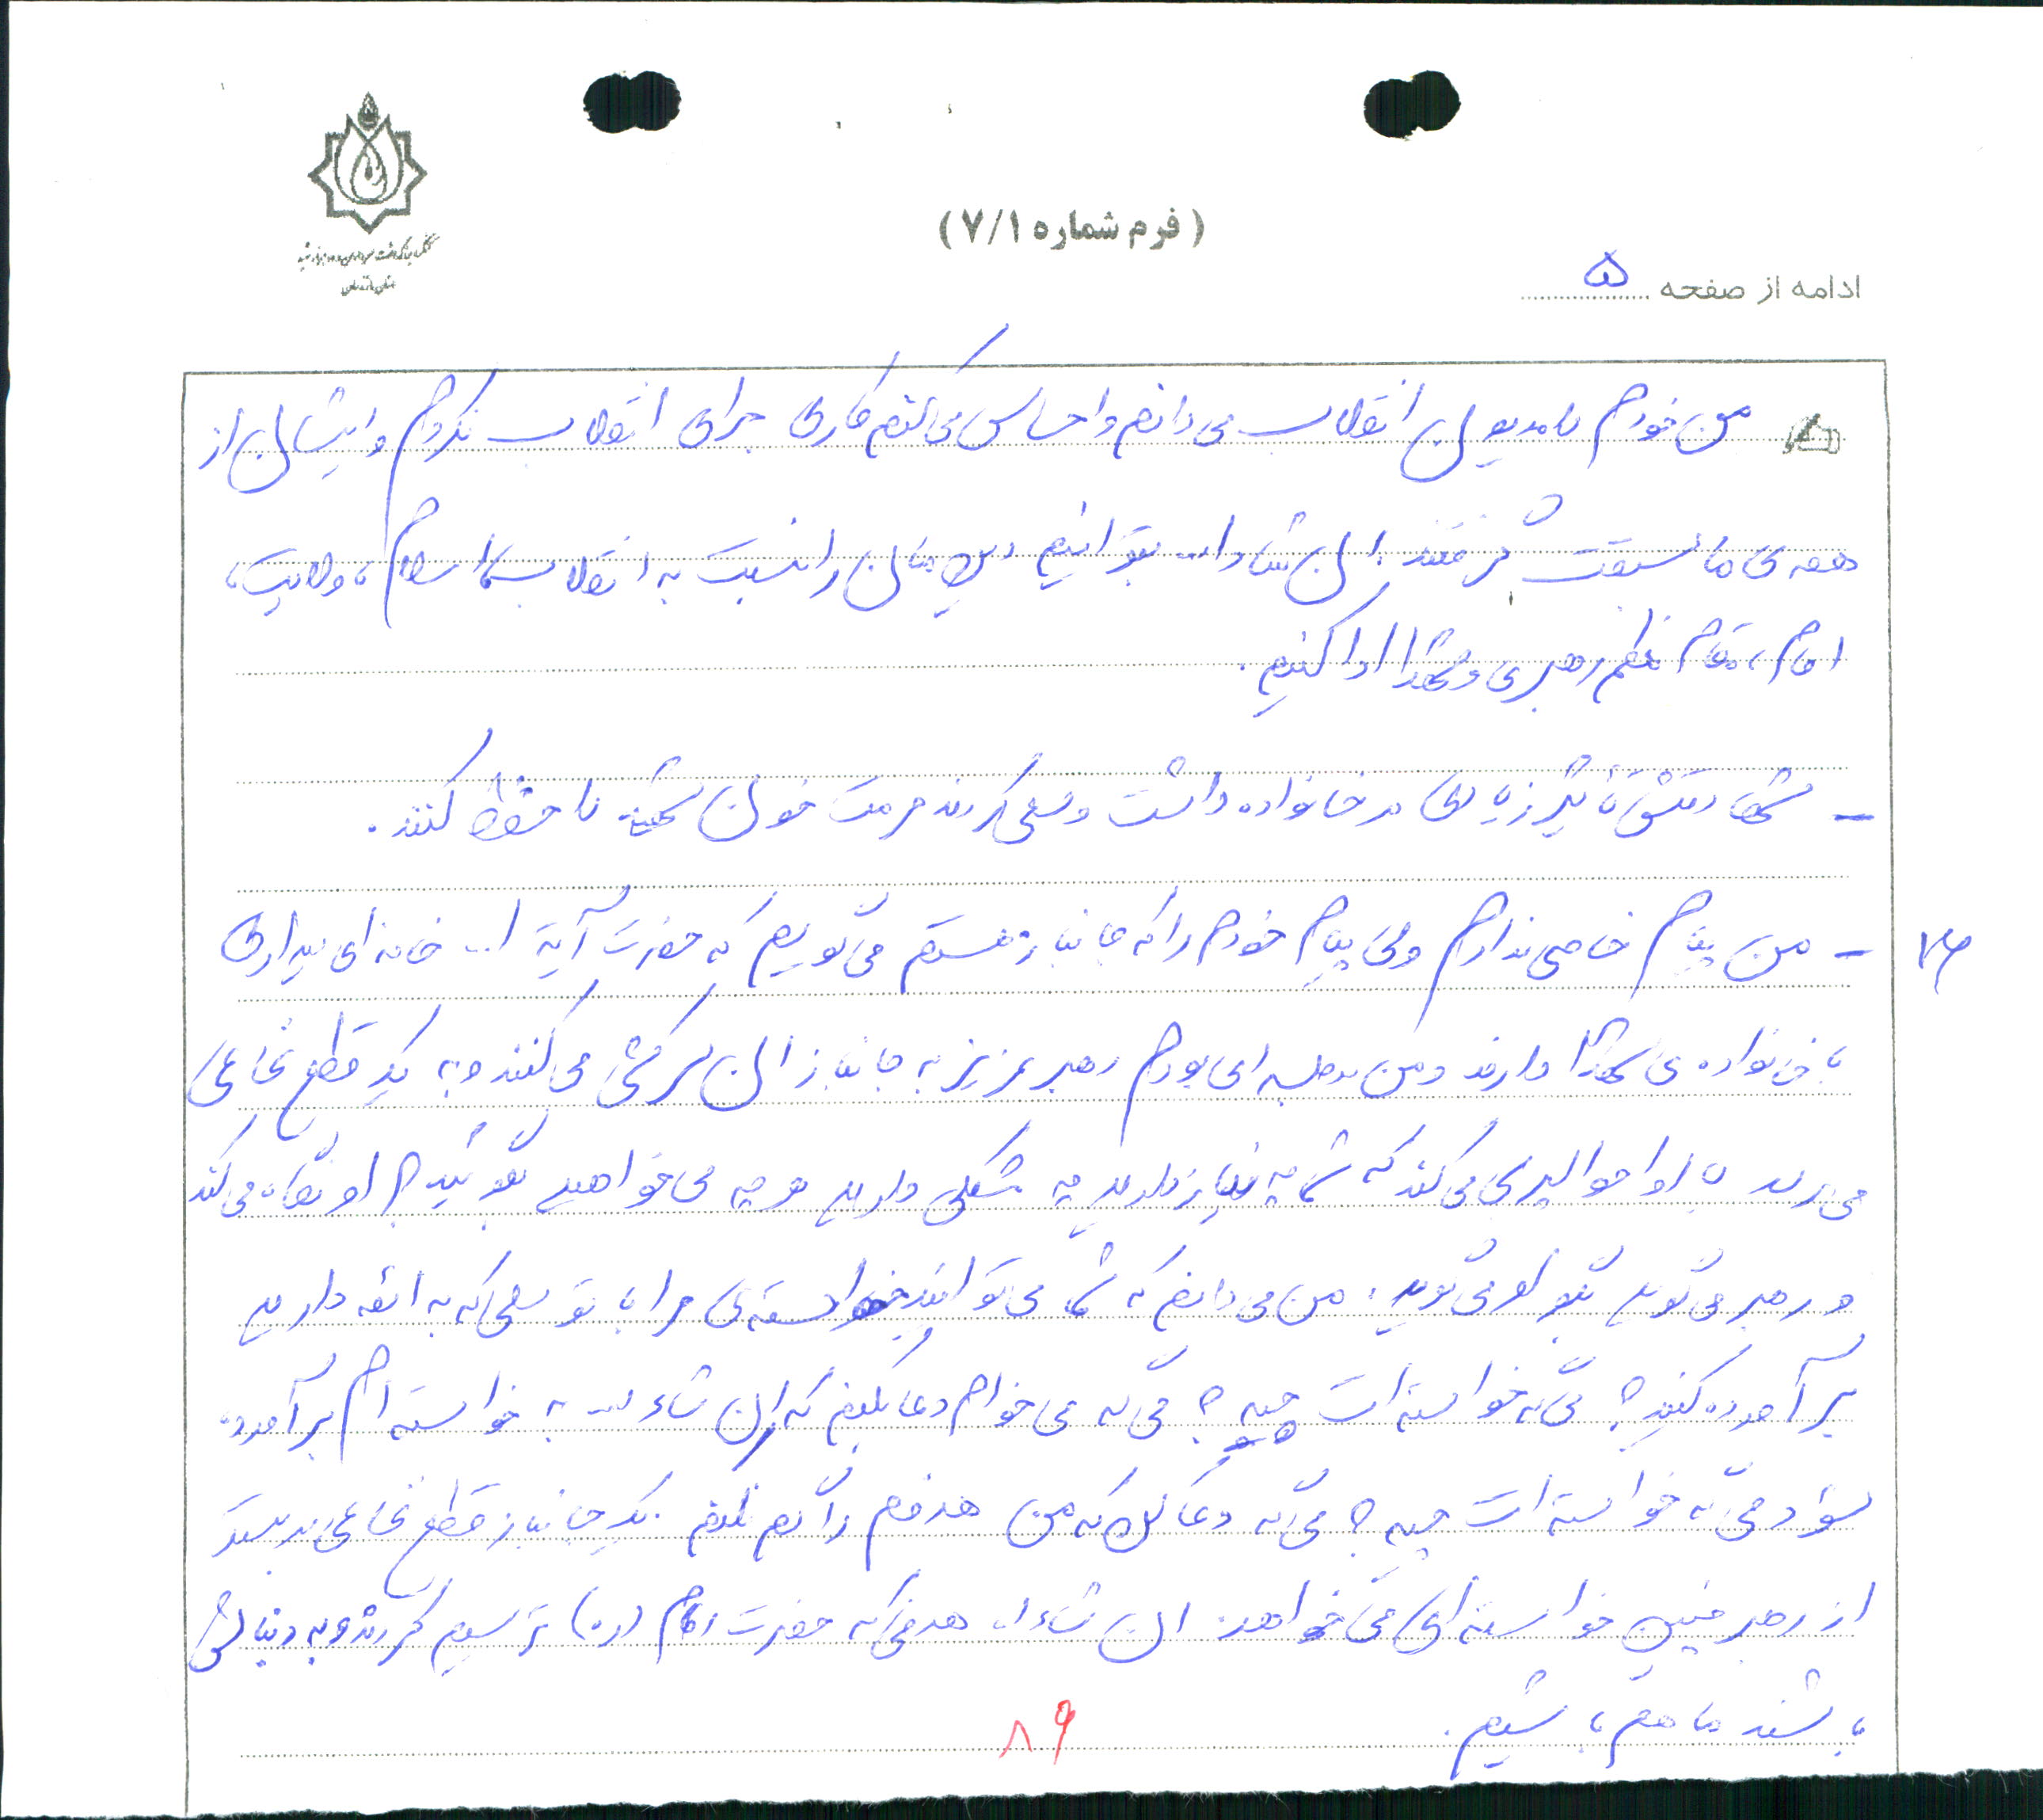 (فرم شماره ۷/۱)
ادامه از صفحه ۵
من خودم را مدیون انقلاب می دانم و احساس می کنم کاری برای انقلاب نکردم و ایشان از
همه ی ما سبقت گرفتند. ان شاءا... بتوانیم دین مان را نسبت به انقلاب، اسلام، ولایت،
امام، مقام معظم رهبری و شهدا ادا کنیم.
- شهادتش تأثیر زیادی در خانواده داشت و سعی کردند حرمت خون شهید را حفظ کنند.
- من پیام خاصی ندارم ولی پیام خودم را که جانباز هستم می گویم که حضرت آیة ا... خامنه ای دیداری
با خانواده ی شهدا دارند و من در جلسه ای بودم رهبر عزیز به جانبازان سرکشی می کنند و به یک قطع نخاعی
می رسد با او احوالپرسی می کند که شما چه نیاز دارید چه مشکلی دارید هر چه می خواهید بگوئید؟ او نگاه می کند
و رهبر می گوید بگو او می گوید: من می دانم که شما می توانید خواسته ی مرا با توسلی که به ائمه دارید
برآمورده کنید؟ می گه خواسته ات چیه؟ می گه می خوام دعا بکنم که ان شاءا... به خواسته ام برآمورده
شود می گه خواسته ات چیه؟ می گه دعا کن که من هدفم را گم نکنم. یک جانباز قطع نخاعی
از رهبر چنین خواسته ای می خواهد. ان شاءا... هدفی که حضرت امام (ره) ترسیم کردند و به دنبالش
باشند ما هم باشیم.
۷۶
۸۹